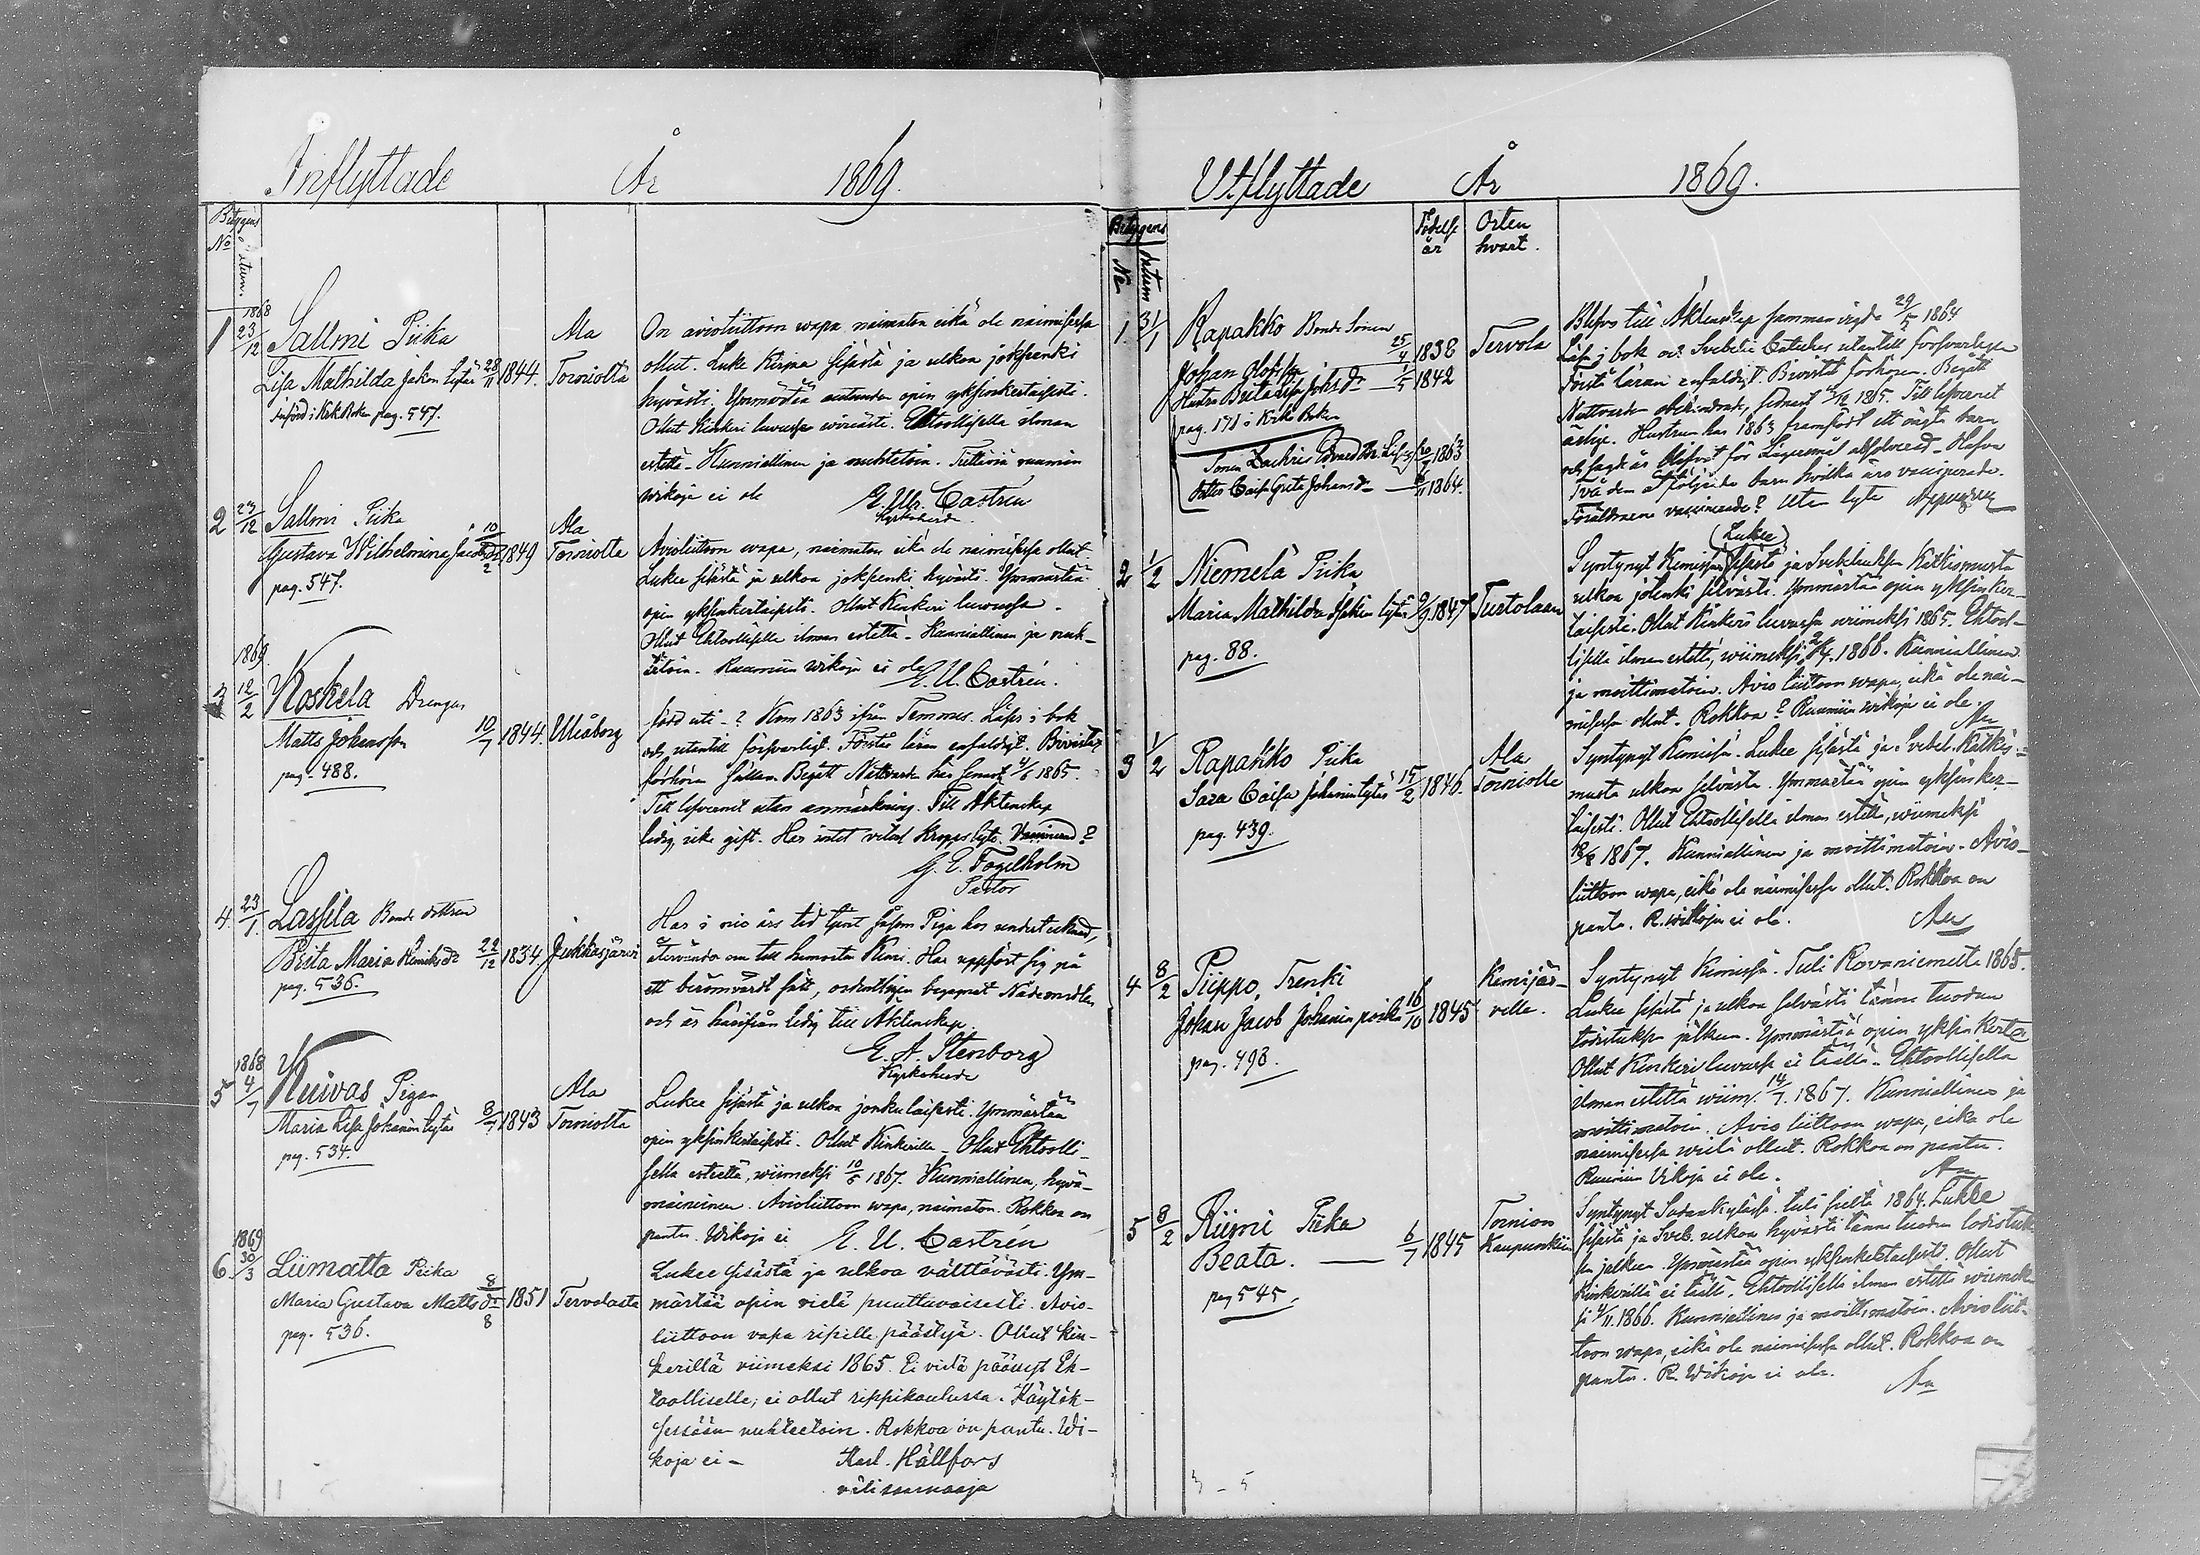 Inflyttade År 1869.
Betygens
No Datum.
1868
1 23/12 Sallmi Piika
Lisa Mathilda Jakon tytär 28/11 1844. Ala Torniolta
införd i Krk Boken pag. 547.
On avioliittoon wapa naimaton eikä ole naimisessa
ollut. Lukee Kirjaa sisästä ja ulkoa joksenki
hyvästi. Ymmärtää autuuden opin yksinkertaisesti.
Ollut Kinkeri luvussa . Ehtoollisella ilman
estettä. Kunniallinen ja nuhtetoin. ruumiin
wikoja ei ole E. Ulr. Castrén
Kyrkoherde.
2 23/12 Sallmi Piika
Gustava Wilhelmina Jacobsdr 10/2 1849 Ala Torniolta
pag. 547.
Avioliittoon wapa, naimaton eikä ole naimisessa ollut.
Lukee sisästä ja ulkoa joksenki hyvästi. Ymmärtää
opin yksinkertaisesti. Ollut Kinkeri luwussa.
Ollut Ehtoolliselle ilman estettä. Kunniallinen ja nuh-
tetoin. Ruumiin wikoja ei ole E. U. Castrén.
1869.
3 12/2 Koskela Drengen
Matts Johansson 10/7 1844. Uleåborg
pag. 488.
född uti - ? Kom 1863 ifrån Temmes. Läser i bok
och utantill försvarligt. Förstår läran enfaldigt. Bivistar
förhören sällan. Begått Nattvarden här senast 4/6 1865.
Till lefvernet utan anmärkning. Till Äktenskap
ledig, icke gift. Har intet vetat kroppslyte. Vaccinerad?
G. E. Fogelholm
Pastor
4. 23/1 Lassila Bonde dottren
Brita Maria Henriksdr 22/12 1834 Jukkasjärvi
pag. 536.
Har i nio års tid tjent såsom Piga hos undertecknad,
återvänder nu till hemorten Kemi. Har uppfört sig på
ett berömvärdt sätt, ordentligen begagnat Nådemedlen
och är härifrån ledig till Äktenskap.
E. A. Stenborg
Kyrkoherde
1868
5 4/7 Kuivas Pigan
Maria Lisa Johanin tytär 8/7 1843 Ala Torniolta
pag. 534.
Lukee sisästä ja ulkoa jonkulaisesti. Ymmärtää
opin yksinkertaisesti. Ollut Kinkerillä. Ollut Ehtoolli-
sella esteettä, wiimeksi 10/6 1867. Kunniallinen, hyvä-
maineinen. Avioliittoon wapa, naimaton. Rokkoa on
pantu. Wikoja ei E. U. Castrén
1869
6 30/3 Liimatta Piika
Maria Gustava Matts dr 8/8 1851 Tervolasta
pag. 536.
Lukee sisästä ja ulkoa välttävästi. Ym-
märtää opin vielä puuttuvaisesti. Avio-
liittoon vapa ripille päästyä. Ollut Kin-
kerillä viimeksi 1865. Ei vielä päässyt Eh-
toolliselle; ei ollut rippikoulussa. Käytök-
sessään nuhteetoin. Rokkoa on pantu. Wi-
koja ei – Karl. Hällfors
välisaarnaaja
Utflyttade År 1869.
Betygens Födelse Orten
No Datum år hvart.
1. 31/1 Rapakko Bonde Sonen
Johan Olofsson 25/4 1838 Tervola
Hustru Brita Lisa Johs dr 1/5 1842
pag. 171 i Kirko Boken
Sonen Zachris 1863
Dottr Caisa Greta Johansdr 1864.
Blefvo till Äktenskap sammanvigda 29/5 1864
Läsa i bok och Svebelii Cateches utantill försvarligen
Förstå läran enfaldigt. Bivistat förhören. Begått
Nattvarden obehindrade, sednast 1865. Till lefvernet
ärlige. Hustrun har 1863 framfödt ett oägta barn
och sagde är blifvit för Lägersmål absolverad. Hafva
Två dem åtföljande barn hvilka äro vaccinerade.
Föräldrarne vaccinerade? Utan lyte
2 1/2 Niemelä Piika
Maria Mathilda Isakin tytär 9/9 1847 Turtolaan
pag. 88.
(Lukee)
Syntynyt Kemissä, sisästä ja Svebeliuksen Katkismusta
ulkoa jotenki selvästi. Ymmärtää opin yksinker-
taisesti. Ollut Kinkeri luvussa wiimeksi 1865. Ehtool-
lisella ilman estettä, wiimeksi 1866. Kunniallinen
ja moittimatoin. Avio liittoon wapa, eikä ole nai-
misessa ollut. Rokkoa? Ruumiin wikoja ei ole.
3 1/2 Rapakko Piika
Sara Caisa Johanin tytär 15/2 1846. Ala Torniolle
pag. 439.
Syntynyt Kemissä. Lukee sisästä ja Svebel. Katkis-
musta ulkoa selvästi. Ymmärtää opin yksinker-
taisesti. Ollut Ehtoollisella ilman estettä, wiimeksi
1867. Kunniallinen ja moittimatoin. Avio-
liittoon wapa, eikä ole naimisessa ollut. Rokkoa on
pantu. R. wikoja ei ole.
4 8/2 Piippo, Trenki
Johan Jacob Johanin poika 16/10 1845 Kemijär-
velle.
pag. 498.
Syntynyt Kemissä. Tuli Rovaniemeltä 1865.
Lukee sisästä ja ulkoa selvästi tänne tuodun
todistuksen jälkeen. Ymmärtää opin yksinkerta
Ollut Kinkeri luvussa ei täällä. Ehtoollisella
ilman estettä wiim. 14/7 1867. Kunniallinen ja
moittimatoin. Avio liittoon wapa, eikä ole
naimisessa vielä ollut. Rokkoa on pantu.
Ruumiin Vikoja ei ole.
5 8/2 Riimi Piika
Beata. 6/7 1845 Tornion
Kaupunkiin
pag 545.
Syntynyt Sodankylässä. tuli sieltä 1864. Lukee
sisästä ja Sveb. ulkoa hyvästi tänne tuodun todistuk-
sen jälkeen. Ymmärtää opin yksinkertaisesti. Ollut
Kinkerillä ei täällä. Ehtoollisella ilman estettä wiimek-
si 4/11. 1866. Kunniallinen ja moittimatoin. Avio liit-
toon wapa, eikä ole naimisessa ollut. Rokkoa on
pantu. R. Wikoja ei ole.
3 – 5